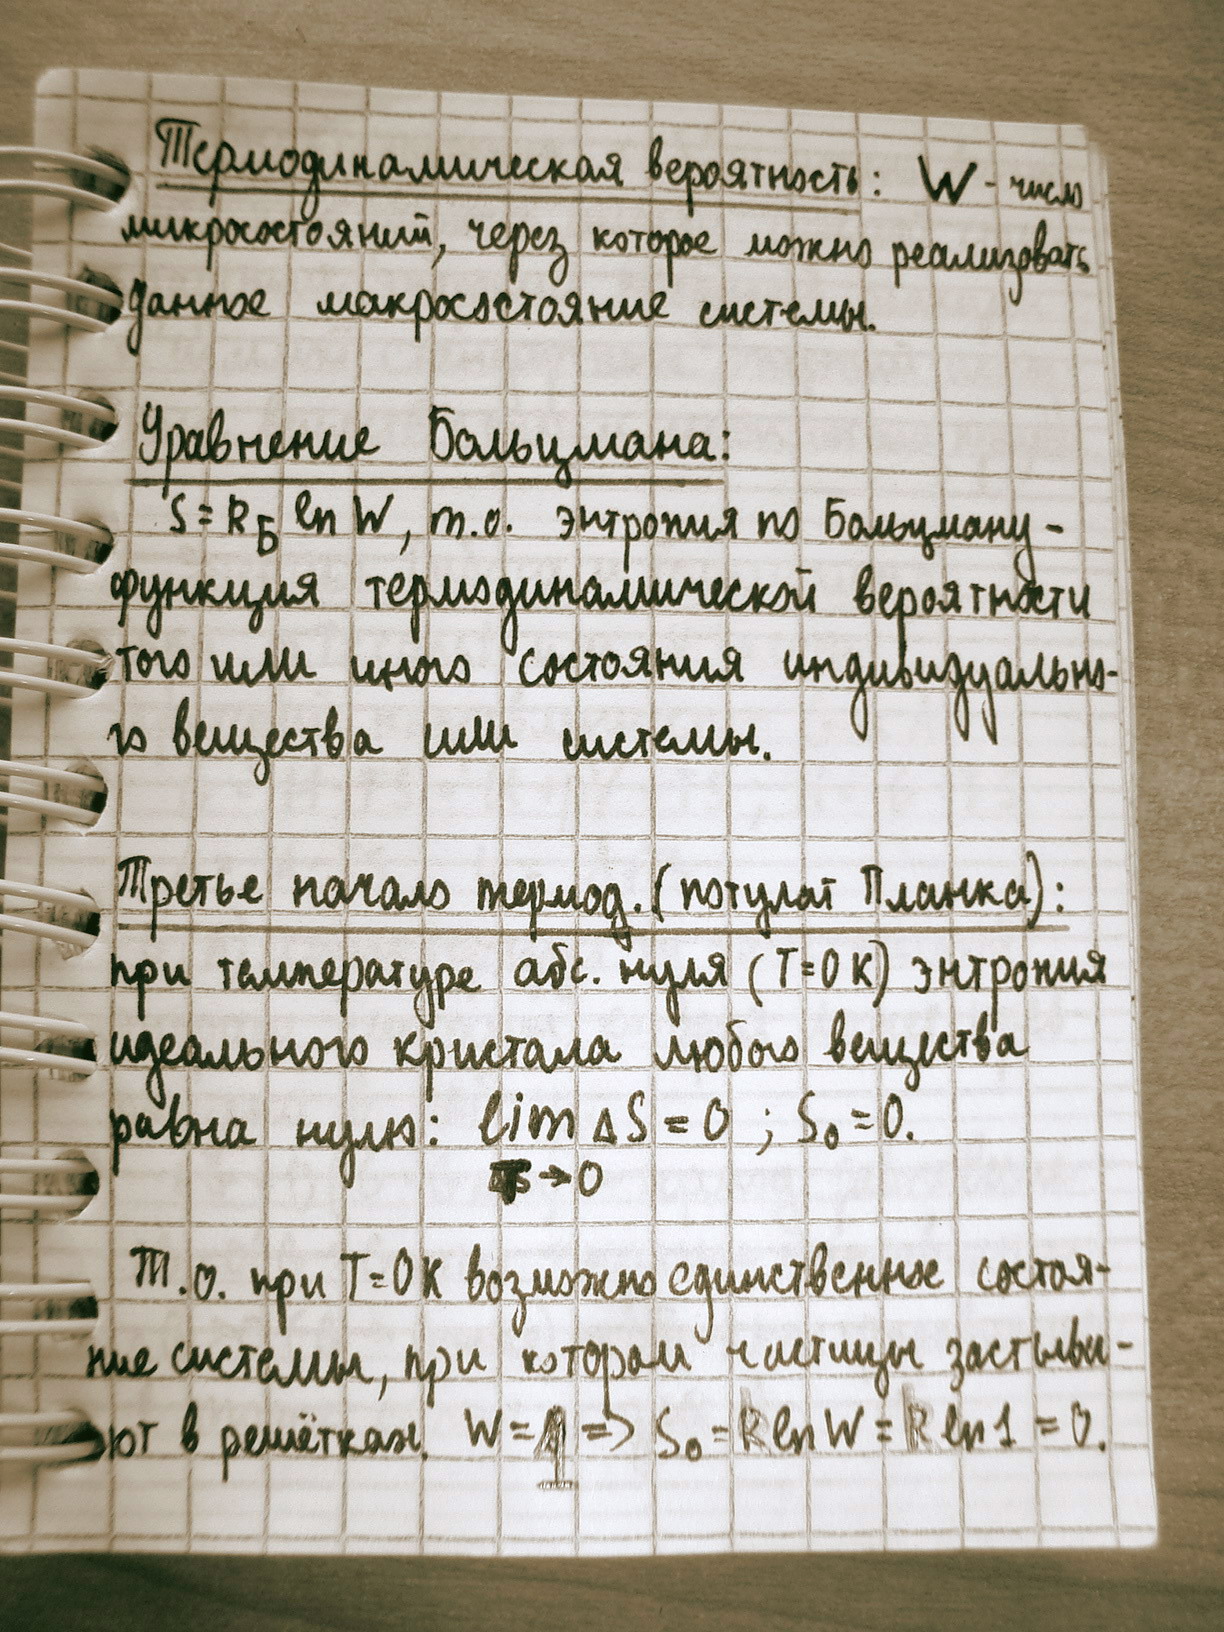 Термодинамическая вероятность: W - число
микросостояний, через которое можно реализовать
данное макросостояние системы.
Уравнение Больцмана:
S = k_Б ln W, т.о. энтропия по Больцману -
функция термодинамической вероятности
того или иного состояния индивидуально-
го вещества или системы.
Третье начало термод. (потулат Планка):
при температуре абс. нуля (T=0 K) энтропия
идеального кристала любого вещества
равна нулю: lim ΔS = 0 ; S₀ = 0.
T → 0
Т.о. при T=0K возможно единственное состоя-
ние системы, при котором частицы застыва-
ют в решётках. W = 1 => S₀ = k ln W = k ln 1 = 0.